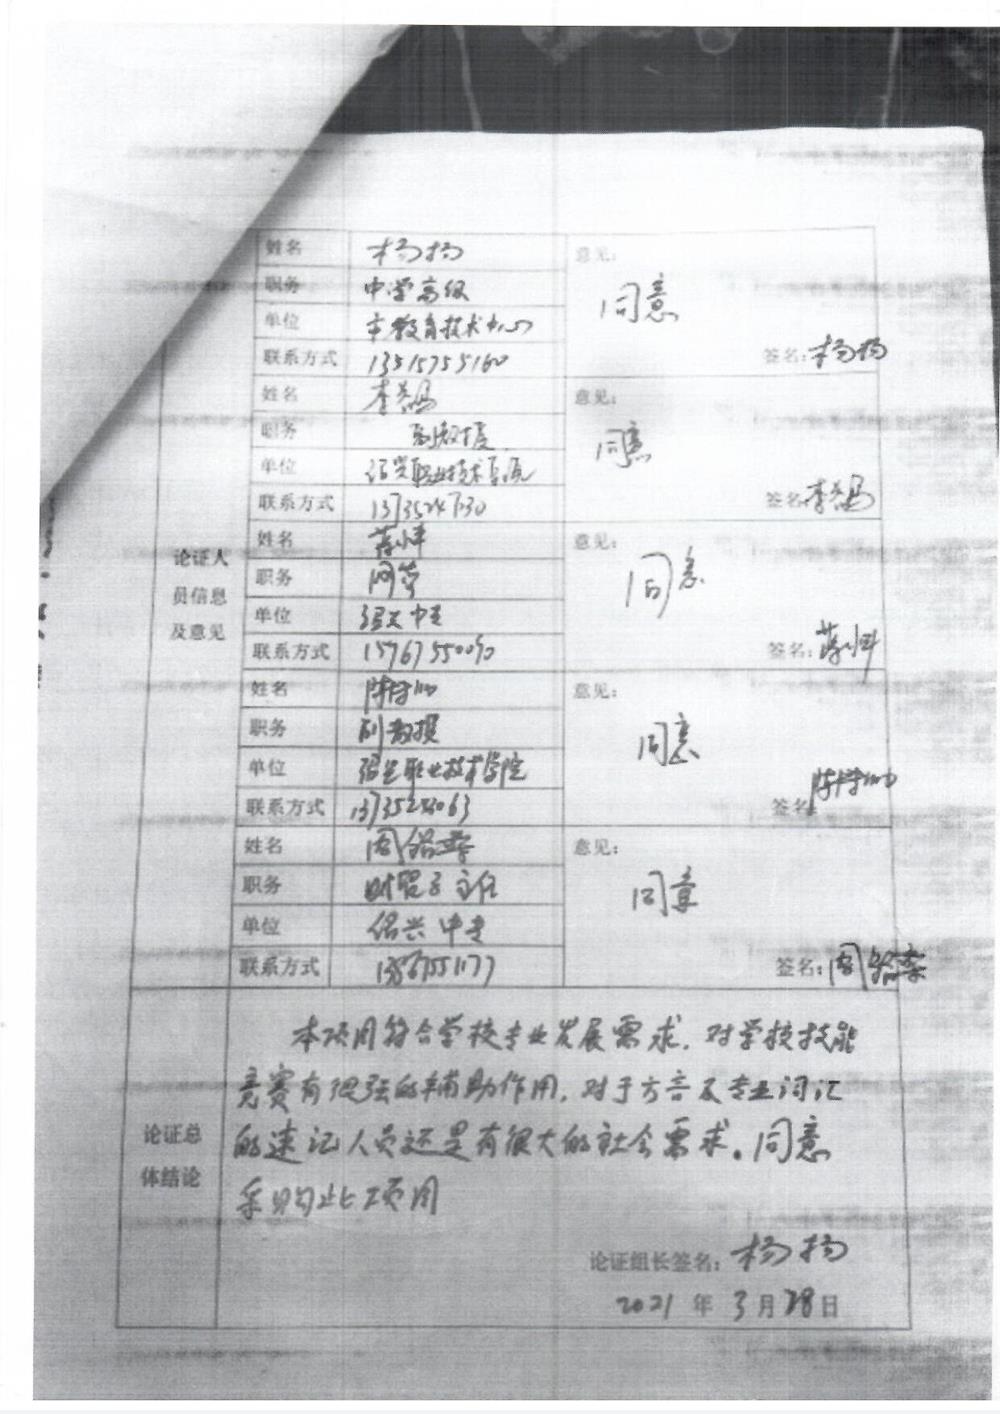 姓名 杨扬 意见：
职务 中学高级 同意
单位 市教育技术中心
联系方式 13515755160 签名：杨扬
姓名 意见：
职务 副教授 同意
单位 绍兴职业技术学院
联系方式 签名：
姓名 意见：
论证人
员信息
及意见
职务 同意
单位 绍兴中专
联系方式 签名：
姓名 意见：
职务 副教授 同意
单位 绍兴职业技术学院
联系方式 签名：
姓名 意见：
职务 主任 同意
单位 绍兴中专
联系方式 签名：
论证总
体结论
本项目符合学校专业发展需求，对学校技能
竞赛有很强的辅助作用，对于方言及专业词汇
的速记人员还是有很大的社会需求。同意
采购此项目
论证组长签名：杨扬
2021 年 3 月 28 日